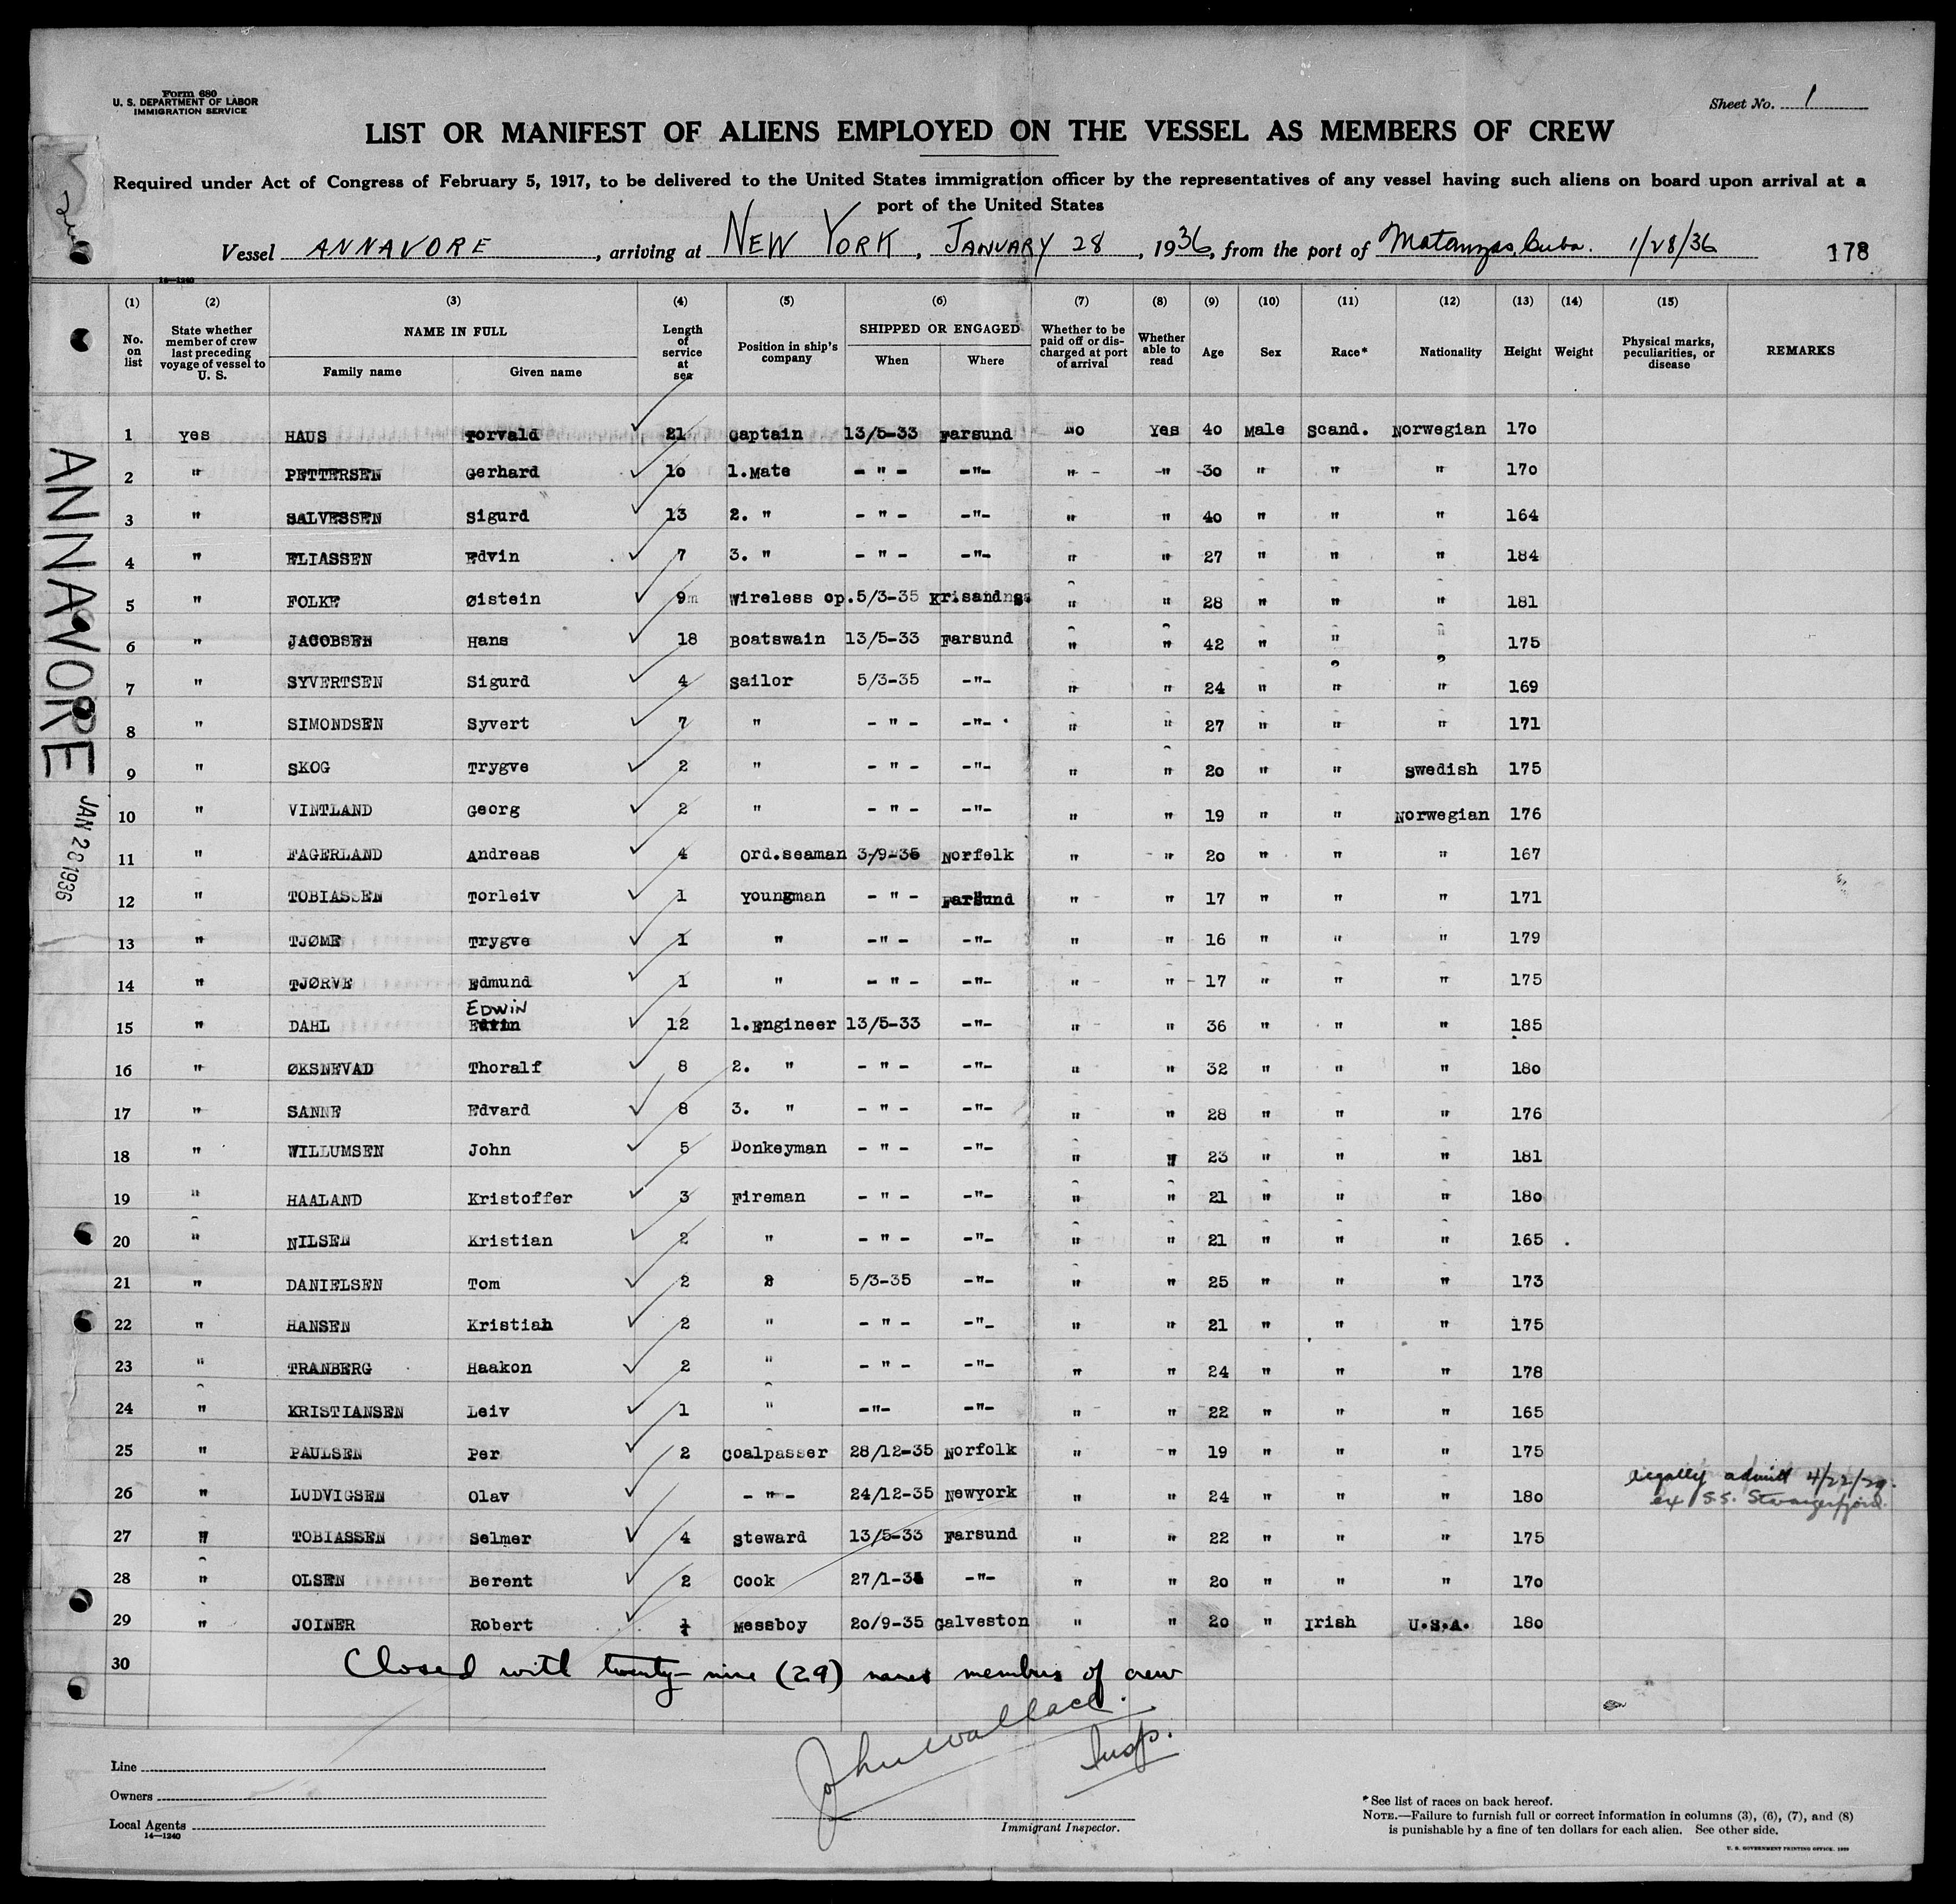 Form 680
U. S. DEPARTMENT OF LABOR
IMMIGRATION SERVICE
Sheet No. 1
LIST OR MANIFEST OF ALIENS EMPLOYED ON THE VESSEL AS MEMBERS OF CREW
Required under Act of Congress of February 5, 1917, to be delivered to the United States immigration officer by the representatives of any vessel having such aliens on board upon arrival at a
port of the United States
Vessel ANNAVORE, arriving at NEW YORK, JANUARY 28, 1936, from the port of Matanzas, Cuba. 1/28/36 178
14—1240
(1) (2) (3) (4) (5) (6) (7) (8) (9) (10) (11) (12) (13) (14) (15)
No. on list State whether member of crew last preceding voyage of vessel to U. S. NAME IN FULL Family name Given name Length of service at sea Position in ship's company SHIPPED OR ENGAGED When Where Whether to be paid off or discharged at port of arrival Whether able to read Age Sex Race* Nationality Height Weight Physical marks, peculiarities, or disease REMARKS
1 yes HAUS Torvald 21 Captain 13/5-33 Farsund No Yes 40 Male Scand. Norwegian 170
2 " PETTERSEN Gerhard 10 1.Mate - " - -"- " " 30 " " " 170
3 " SALVESSEN Sigurd 13 2. " - " - -"- " " 40 " " " 164
4 " ELIASSEN Edvin 7 3. " - " - -"- " " 27 " " " 184
5 " FOLKE Øistein 9m Wireless op. 5/3-35 " " 28 " " " 181
6 " JACOBSEN Hans 18 Boatswain 13/5-33 Farsund " " 42 " " " 175
7 " SYVERTSEN Sigurd 4 Sailor 5/3-35 -"- " " 24 " " " 169
8 " SIMONDSEN Syvert 7 " - " - -"- " " 27 " " " 171
9 " SKOG Trygve 2 " - " - -"- " " 20 " " Swedish 175
10 " VINTLAND Georg 2 " - " - -"- " " 19 " " Norwegian 176
11 " FAGERLAND Andreas 4 Ord.seaman 3/9-35 Norfolk " " 20 " " " 167
12 " TOBIASSEN Torleiv 1 youngman - " - Farsund " " 17 " " " 171
13 " TJØME Trygve 1 " -" - -"- " " 16 " " " 179
14 " TJØRVE Edmund 1 " - " - -"- " " 17 " " " 175
EDWIN
15 " DAHL 12 1.Engineer 13/5-33 -"- " " 36 " " " 185
16 " ØKSNEVAD Thoralf 8 2. " - " - -"- " " 32 " " " 180
17 " SANNE Edvard 8 3. " - " - -"- " " 28 " " " 176
18 " WILLUMSEN John 5 Donkeyman - " - -"- " " 23 " " " 181
19 " HAALAND Kristoffer 3 Fireman - " - -"- " " 21 " " " 180
20 " NILSEN Kristian 2 " - " - -"- " " 21 " " " 165
21 " DANIELSEN Tom 2 " 5/3-35 -"- " " 25 " " " 173
22 " HANSEN Kristian 2 " - " - -"- " " 21 " " " 175
23 " TRANBERG Haakon 2 " - " - -"- " " 24 " " " 178
24 " KRISTIANSEN Leiv 1 " -"- -"- " " 22 " " " 165
25 " PAULSEN Per 2 Coalpasser 28/12-35 Norfolk " " 19 " " " 175
26 " LUDVIGSEN Olav - " - 24/12-35 Newyork " " 24 " " " 180 legally admitt 4/22/29. ex S.S. Stavangerfjord.
27 " TOBIASSEN Selmer 4 Steward 13/5-33 Farsund " " 22 " " " 175
28 " OLSEN Berent 2 Cook 27/1-34 -"- " " 20 " " " 170
29 " JOINER Robert Messboy 20/9-35 Galveston " " 20 " Irish U.S.A. 180
30 Closed with twenty-nine (29) names members of crew
John Wallace.
Insp.
Line
Owners
Local Agents
14—1240
Immigrant Inspector.
* See list of races on back hereof.
NOTE.—Failure to furnish full or correct information in columns (3), (6), (7), and (8)
is punishable by a fine of ten dollars for each alien. See other side.
U. S. GOVERNMENT PRINTING OFFICE
ANNAVORE
JAN 28 1936